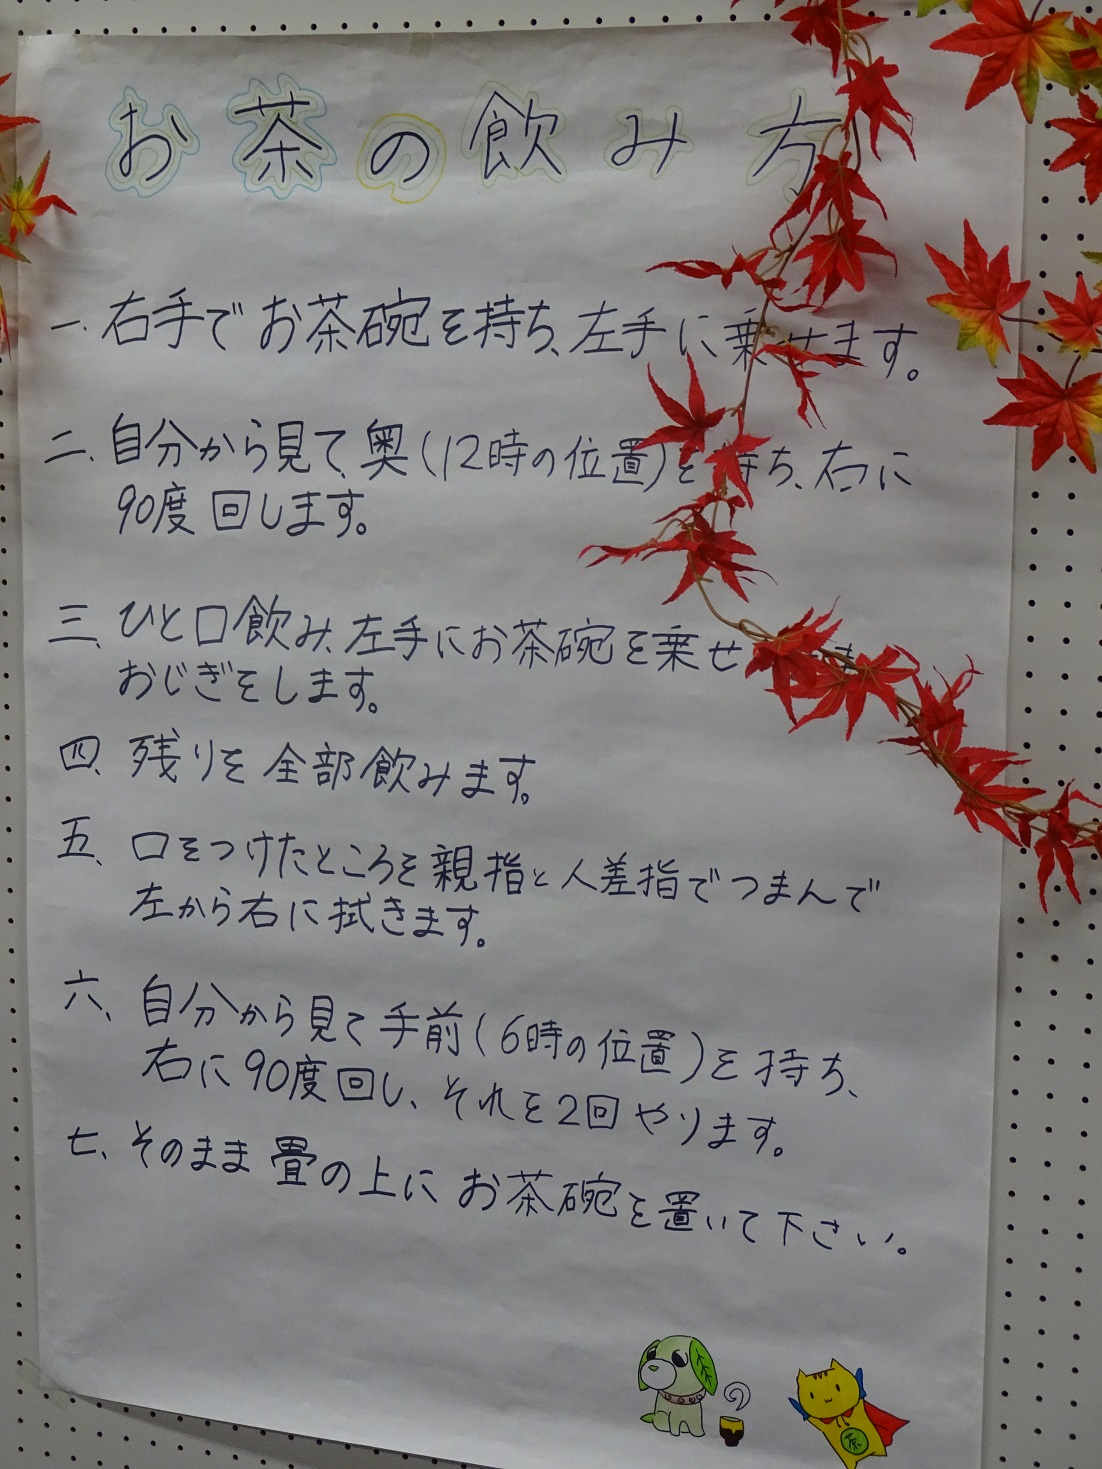 お茶の飲み方
一、右手でお茶碗を持ち、左手に乗せます。
二、自分から見て、奥(12時の位置)を持ち、右に
90度回します。
三、ひと口飲み、左手にお茶碗を乗せ
おじぎをします。
四、残りを全部飲みます。
五、口をつけたところを親指と人差指でつまんで
左から右に拭きます。
六、自分から見て手前(6時の位置)を持ち、
右に90度回し、それを2回やります。
七、そのまま畳の上にお茶碗を置いて下さい。
茶